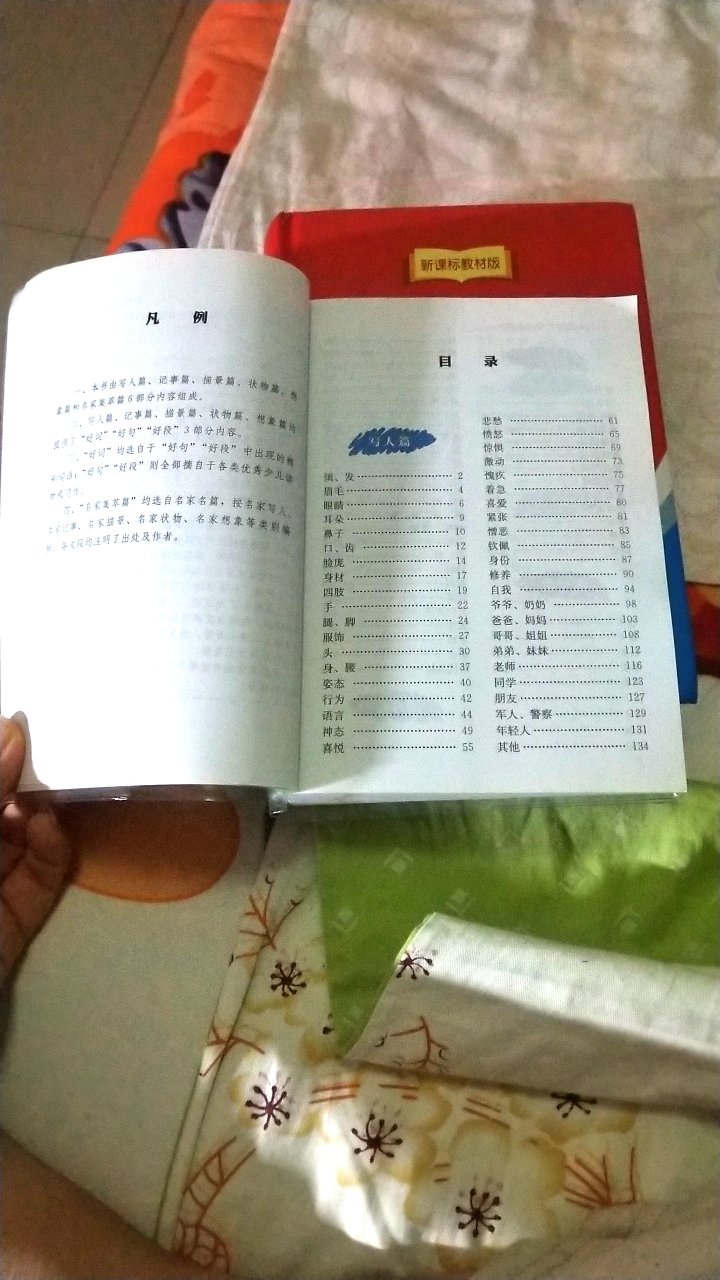 新课标教材版
凡 例
一、本书由写人篇、记事篇、描景篇、状物篇、想
象篇和名家集萃篇6部分内容组成。
二、写人篇、记事篇、描景篇、状物篇、想象篇均
提供了“好词”“好句”“好段”3部分内容。
三、“好词”均选自于“好句”“好段”中出现的精
彩词语;“好句”“好段”则全部摘自于各类优秀少儿读
四、“名家集萃篇”均选自名家名篇,按名家写人、
名家记事、名家描景、名家状物、名家想象等类别编
排,各文段均注明了出处及作者。
目 录
写人篇
须、发 2
眉毛 4
眼睛 6
耳朵 9
鼻子 10
口、齿 12
脸庞 14
身材 17
四肢 19
手 22
腿、脚 24
服饰 27
头 30
身、腰 37
姿态 40
行为 42
语言 44
神态 49
喜悦 55
悲愁 61
愤怒 65
惊惧 69
激动 73
愧疚 75
着急 77
喜爱 80
紧张 81
憎恶 83
钦佩 85
身份 87
修养 90
自我 94
爷爷、奶奶 98
爸爸、妈妈 103
哥哥、姐姐 108
弟弟、妹妹 112
老师 116
同学 123
朋友 127
军人、警察 129
年轻人 131
其他 134